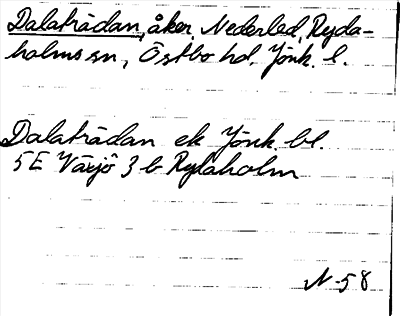 Dalaträdan, åker, Nederled, Ryda-
holms sn, Östbo hd. Jönk. l.
Dalaträdan ek Jönk. bl.
5E Växjö 3 b Rydaholm
N-58